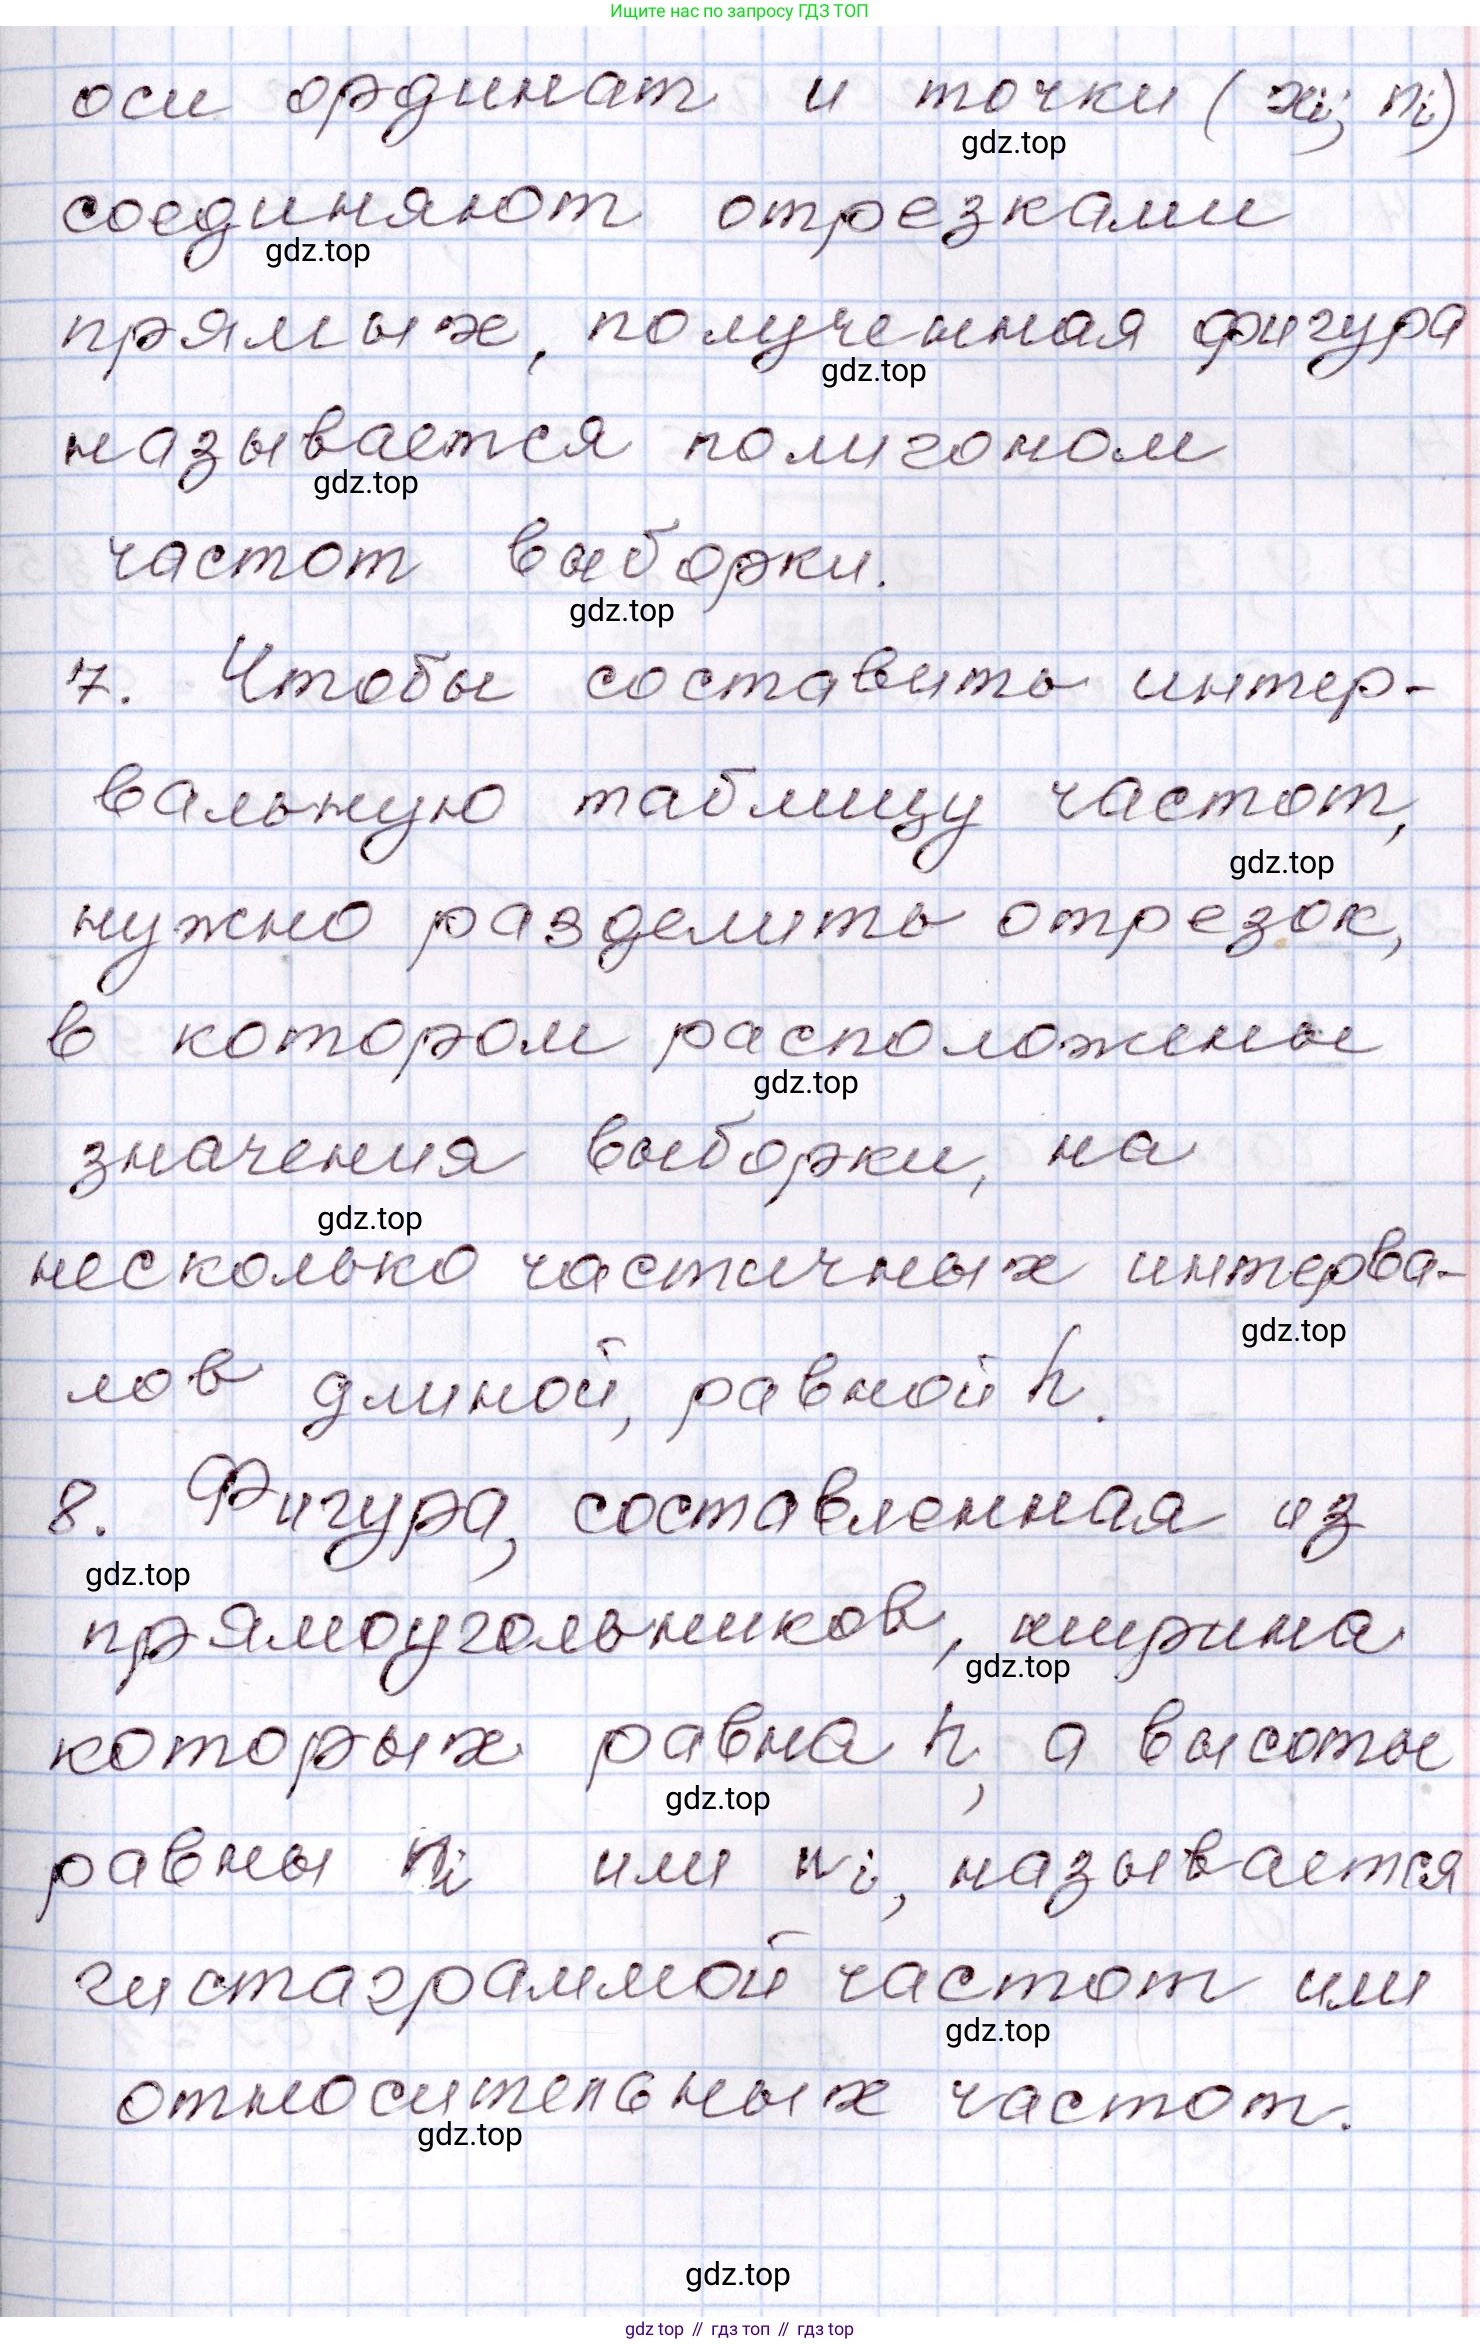 Ищите нас по запросу ГДЗ ТОП
оси ординат и точки (xi; ni)
gdz.top
соединяют отрезками
gdz.top
прямых, полученная фигура
gdz.top
называется полигоном
gdz.top
частот выборки.
gdz.top
7. Чтобы составить интер-
вальную таблицу частот,
gdz.top
нужно разделить отрезок,
в котором расположены
gdz.top
значения выборки, на
gdz.top
несколько частичных интерва-
gdz.top
лов длиной, равной h.
8. Фигура, составленная из
gdz.top
прямоугольников, ширина
gdz.top
которых равна h, а высоты
gdz.top
равны ni или wi, называется
гистаграммой частот или
gdz.top
относительных частот.
gdz.top
gdz.top
gdz.top // гдз топ // гдз top